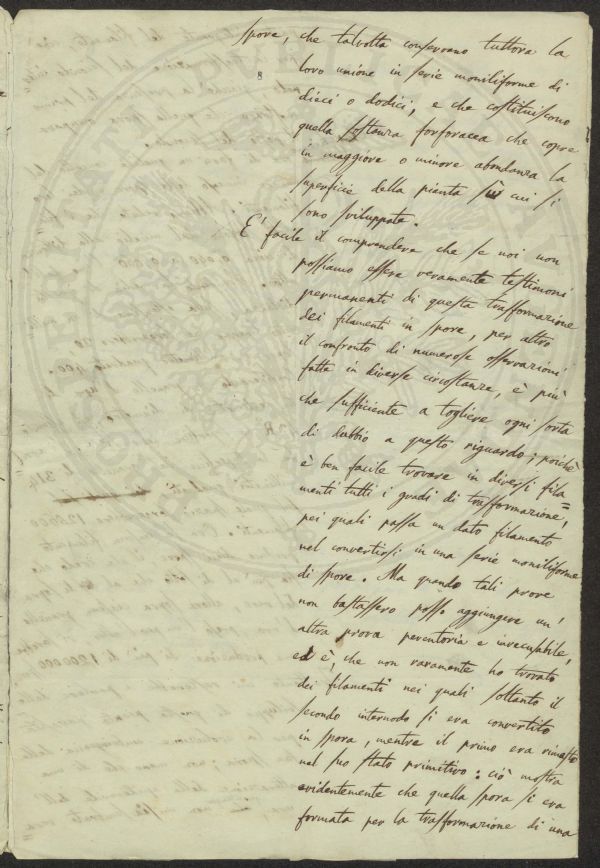 8
spore, che talvolta conservano tuttora la
loro unione in serie moniliforme di
dieci o dodici, e che costituiscono
quella sostanza forforacea che copre
in maggiore o minore abondanza la
superficie della pianta su cui si
sono sviluppate.
E' facile il comprendere che se noi non
possiamo essere veramente testimoni
permanenti di questa trasformazione
dei filamenti in spore, per altro
il confronto di numerose osservazioni
fatte in diverse circostanze, è più
che sufficiente a togliere ogni sorta
di dubbio a questo riguardo; poichè
è ben facile trovare in diversi fila=
menti tutti i gradi di trasformazione,
pei quali passa un dato filamento
nel convertirsi in una serie moniliforme
di spore. Ma quando tali prove
non bastassero posso aggiungere un'
altra prova perentoria e irrecusabile,
ed è, che non raramente ho trovato
dei filamenti nei quali soltanto il
secondo internodo si era convertito
in spora, mentre il primo era rimasto
nel suo stato primitivo: ciò mostra
evidentemente che quella spora si era
formata per la trasformazione di una